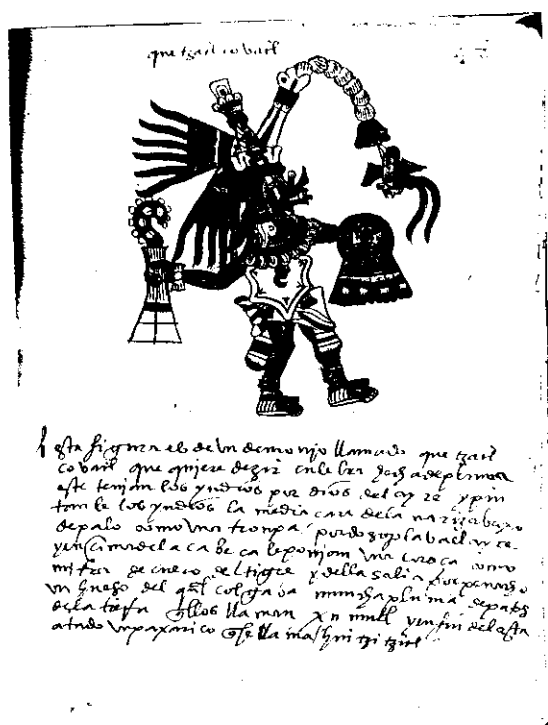 que tzalcovatl
Esta figura es de un demonio llamado que tzal
covatl que quiere dezir culebra de pluma
este tenian los yndios por dios del ayre y pin
tan le los yndios la media cara de la nariz abaxo
de palo como una tronpa por do soplava el ayre
y encima de la cabeça le ponian una coroça como
mitra de cuero de tigre y della salia por penacho
un hueso del qual colgava mucha pluma de patos
de la tierra qellos llaman y en fin del esta
atado un paxarico qse llama huitzitzil